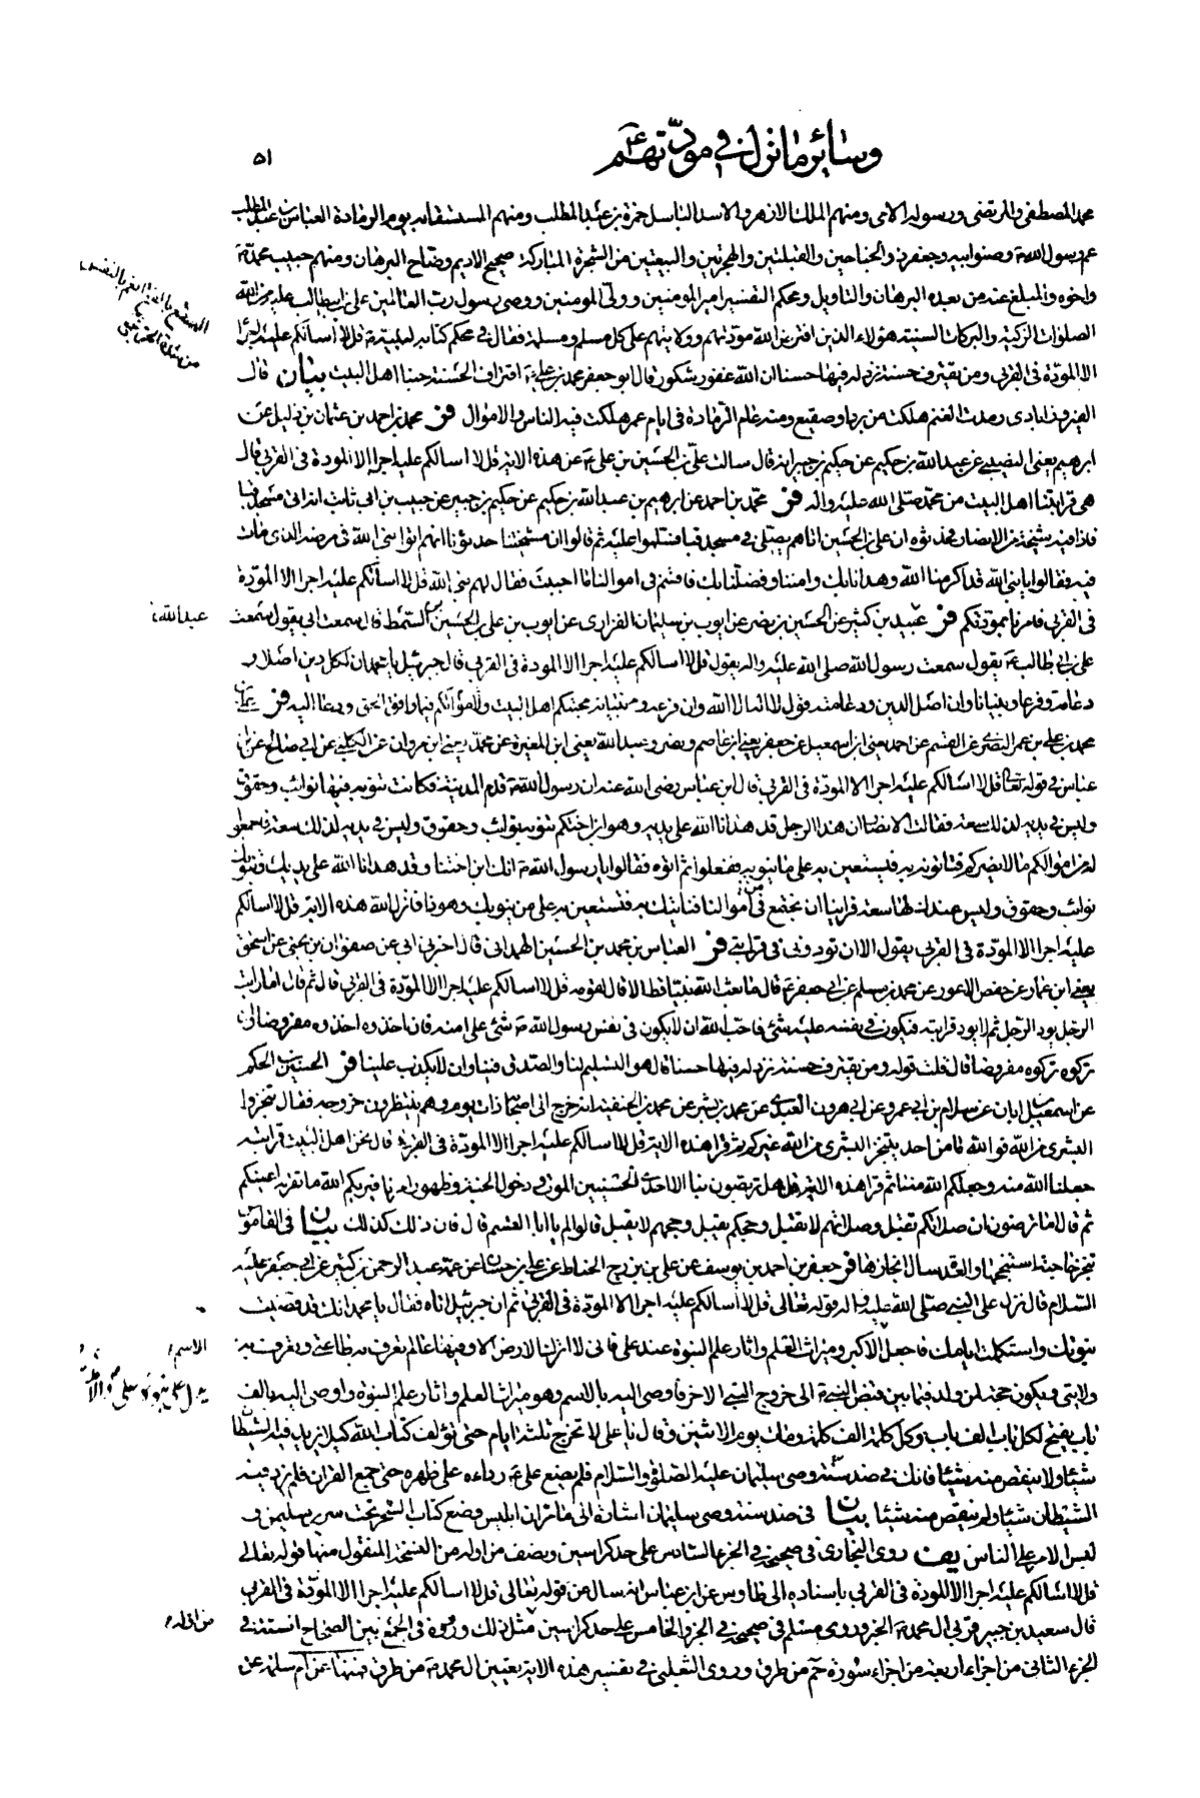 وسائر ما نزل في مودّتهم ع
٥١
محمد المصطفى والمرتضى ورسوله الامى ومنهم الملك الازهر والاسد الباسل حمزة بن عبد المطلب ومنهم المستسقا به يوم الرمادة العباس بن عبد المطلب
عم رسول الله ص وصنو ابيه وجعفر ذو الجناحين والقبلتين والهجرتين والبيعتين من الشجرة المباركة صحيح الاديم وضاح البرهان ومنهم حبيب محمد ص
واخوه والمبلغ عنه من بعده البرهان والتاويل ومحكم التفسير امير المومنين وولى المومنين ووصى رسول رب العالمين على بن ابيطالب عليه من الله
الصلوات الزكية والبركات السنية هؤلاء الذين افترض الله مودتهم وولايتهم على كل مسلم ومسلمة فقال في محكم كتابه لنبيه ص قل لا اسالكم عليه اجرا
الا المودّة في القربى ومن يقترف حسنة نزد له فيها حسنا ان الله غفور شكور قال ابو جعفر محمد بن على ع اقتراف الحسنة حبنا اهل البيت بيان قال
الفيروزابادى رمدت الغنم هلكت من برد او صقيع ومنه عام الرمادة في ايام عمر هلكت فيه الناس والاموال فر محمد بن احمد بن عثمان بن ذليل عن
ابرهيم يعنى الصينى عن عبد الله بن حكيم عن حكيم بن جبير انه قال سالت علىّ بن الحسين بن على ع عن هذه الاية قل لا اسالكم عليه اجرا الا المودة في القربى قال
هى قرابتنا اهل البيت من محمد صلى الله عليه واله فر محمد بن احمد عن ابرهيم بن عبد الله بن حكيم عن حكيم بن جبير عن حبيب بن ابى ثابت انه اتى مسجد قبا
فاذا فيه مشيخة من الانصار فحدثوه ان على بن الحسين اتاهم يصلى في مسجد قبا فسلموا عليه ثم قالوا ان مشيختنا حدثونا انهم اتوا نبى الله في مرضه الذى مات
فيه فقالوا يا نبى الله قد اكرمنا الله وهدانا بك وامننا وفضلنا بك فاقسم في اموالنا ما احببت فقال لهم نبى الله قل لا اسالكم عليه اجرا الا المودّة
في القربى فامرنا بمودتكم فر عبيد بن كثير عن الحسين بن نصر عن ايوب بن سليمان الفزارى عن ايوب بن على بن الحسين بن السمط قال سمعت ابى يقول سمعت
عبد الله
على بن ابى طالب ع يقول سمعت رسول الله صلى الله عليه واله يقول قل لا اسالكم عليه اجرا الا المودة في القربى قال جبرئيل يا محمد ان لكل دين اصلا و
دعامة وفرعا وبنيانا وان اصل الدين ودعامته قول لا اله الا الله وان فرعه وبنيانه محبتكم اهل البيت وموالاتكم فيما وافق الحق ودعا اليه فر
محمد بن على بن عمر البصرى عن القسم عن احمد يعنى ابن اسمعيل عن جعفر يعنى ابن عاصم ونصر وعبد الله يعنى ابن المغيرة عن محمد يعنى ابن مروان عن الكلبى عن ابى صالح عن ابن
عباس في قوله تعالى قل لا اسالكم عليه اجرا الا المودّة في القربى قال ابن عباس رضى الله عنه ان رسول الله ص قدم المدينة فكانت تنوبه فيها نوائب وحقوق
وليس في يديه لذلك سعة فقالت الانصار ان هذا الرجل قد هدانا الله على يديه وهو ابن اختكم تنوبه نوائب وحقوق وليس في يديه لذلك سعة فاجمعوا
له من اموالكم ما لا يضركم فتاتونه به فيستعين به على ما ينوبه ففعلوا ثم اتوه فقالوا يا رسول الله ص انك ابن اختنا وقد هدانا الله على يديك وتنوبك
نوائب وحقوق وليس عندك لها سعة فراينا ان نجتمع في اموالنا فناتيك به فتستعين به على من ينوبك وهو ذا فانزل الله هذه الاية قل لا اسالكم
عليه اجرا الا المودّة في القربى يقول الا ان تودونى في قرابتى فر العباس بن محمد بن الحسين الهمدانى قال اخبرنى ابى عن صفوان بن يحيى عن اسحق
يعنى ابن عمار عن حفص الاعور عن محمد بن مسلم عن ابى جعفر ع قال ما بعث الله نبيا قط الا قال لقومه قل لا اسالكم عليه اجرا الا المودّة في القربى قال ثم قال اما رايت
الرجل يود الرجل ثم لا يود قرابته فيكون في نفسه عليه شئ فاحب الله ان لا يكون في نفس رسول الله ص شئ على امته فان اخذوه اخذوه مفروضا وان
تركوه تركوه مفروضا قال قلت قوله ومن يقترف حسنة نزد له فيها حسنا قال هو التسليم لنا والصدق فينا وان لا يكذب علينا فر الحسين بن الحكم
عن اسمعيل بن ابان عن سلام بن ابى عمرو عن ابى هرون العبدى عن محمد بن بشر عن محمد بن الحنفية انه خرج الى اصحابه ذات يوم وهم ينتظرون خروجه فقال تنجزوا
البشرى من الله فو الله ما من احد يتنجز البشرى من الله غيركم ثم قرا هذه الاية قل لا اسالكم عليه اجرا الا المودّة في القربى قال نحن اهل البيت قرابته
جعلنا الله منه وجعلكم الله منا ثم قرا هذه الاية قل هل تربصون بنا الا احدى الحسنيين الموت ودخول الجنة وظهور امرنا فيريكم الله ما تقر به اعينكم
ثم قال اما ترضون ان صلاتكم تقبل وصلاتهم لا تقبل وحجكم يقبل وحجهم لا يقبل قالوا لم يا ابا القسم قال فان ذلك كذلك بيان في القاموس
تنجز حاجته استنجحها والعدة سال انجازها فر جعفر بن احمد بن يوسف عن على بن بزرج الحناط عن على بن حسان عن عمه عبد الرحمن بن كثير عن ابى جعفر عليه
السلام قال نزل على النبى صلى الله عليه واله قوله تعالى قل لا اسالكم عليه اجرا الا المودّة في القربى ثم ان جبرئيل اتاه فقال يا محمد انك قد قضيت
نبوتك واستكملت ايامك فاجعل الاكبر وميراث العلم واثار علم النبوة عند على فانى لا اترك الارض الا وفيها عالم تعرف به طاعتى وتعرف به
الاسم
ولايتى ويكون حجة لمن ولد فيما بين قبض النبى الى خروج النبى الاخر فاوصى اليه بالاسم وهو ميراث العلم واثار علم النبوة واوصى اليه بالف
باب يفتح لكل باب الف باب وكل كلمة الف كلمة ومات يوم الاثنين وقال يا على لا تخرج ثلثة ايام حتى تؤلف كتاب الله كيلا يزيد فيه الشيطان
شيئا ولا ينقص منه شيئا فانك في ضد سنة وصى سليمان عليه الصلوة والسلام فلم يضع على ع رداءه على ظهره حتى جمع القران فلم يزد فيه
الشيطان شيئا ولم ينقص منه شيئا بيان في ضد سنة وصى سليمان اشارة الى ما مر ان ابليس وضع كتاب السحر تحت سرير سليمن و
لبس الامر على الناس يف روى البخارى في صحيحه في الجزء السادس على حد كراسين ونصف من اوله من النسخة المنقول منها قوله تعالى
قل لا اسالكم عليه اجرا الا المودة في القربى باسناده الى طاوس عن ابن عباس انه سال عن قوله تعالى قل لا اسالكم عليه اجرا الا المودّة في القربى
قال سعيد بن جبير قربى ال محمد ص الخبر وروى مسلم في صحيحه في الجزء الخامس على حد كراسين مثل ذلك ورووه في الجمع بين الصحاح الستة في
من اوله
الجزء الثانى من اجزاء اربعة من اجزاء سورة حم من طرق وروى الثعلبى في تفسير هذه الاية تعيين ال محمد ص من طرق فمنها عن ام سلمة عن